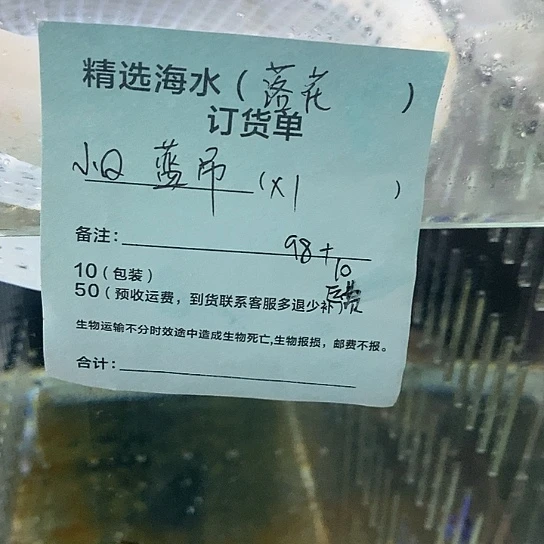 精选海水(落花)
订货单
小Q 蓝吊(x1)
备注:
98+10
10(包装)
50(预收运费,到货联系客服多退少补)
生物运输不分时效途中造成生物死亡,生物报损,邮费不报。
合计: